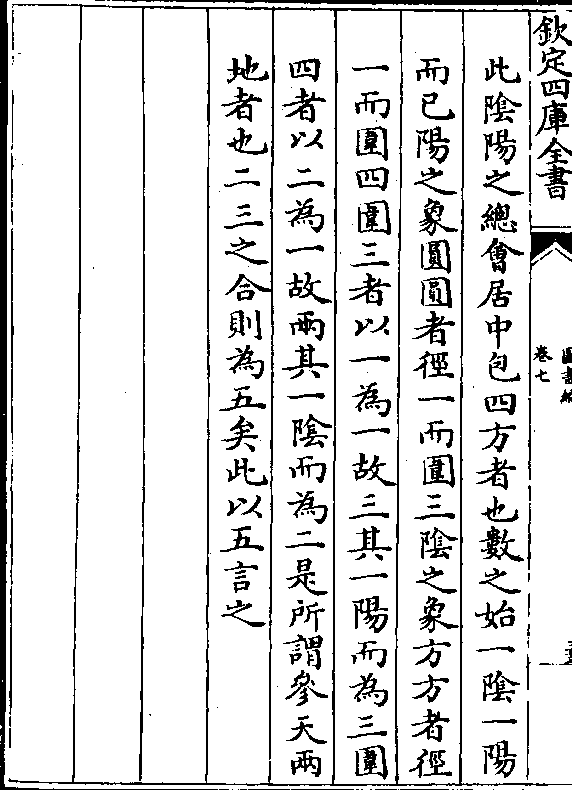 欽定四庫全書
圖書編
卷七
此陰陽之總會居中包四方者也數之始一陰一陽
而已陽之象圓圓者徑一而圍三陰之象方方者徑
一而圍四圍三者以一為一故三其一陽而為三圍
四者以二為一故兩其一陰而為二是所謂參天兩
地者也二三之合則為五矣此以五言之